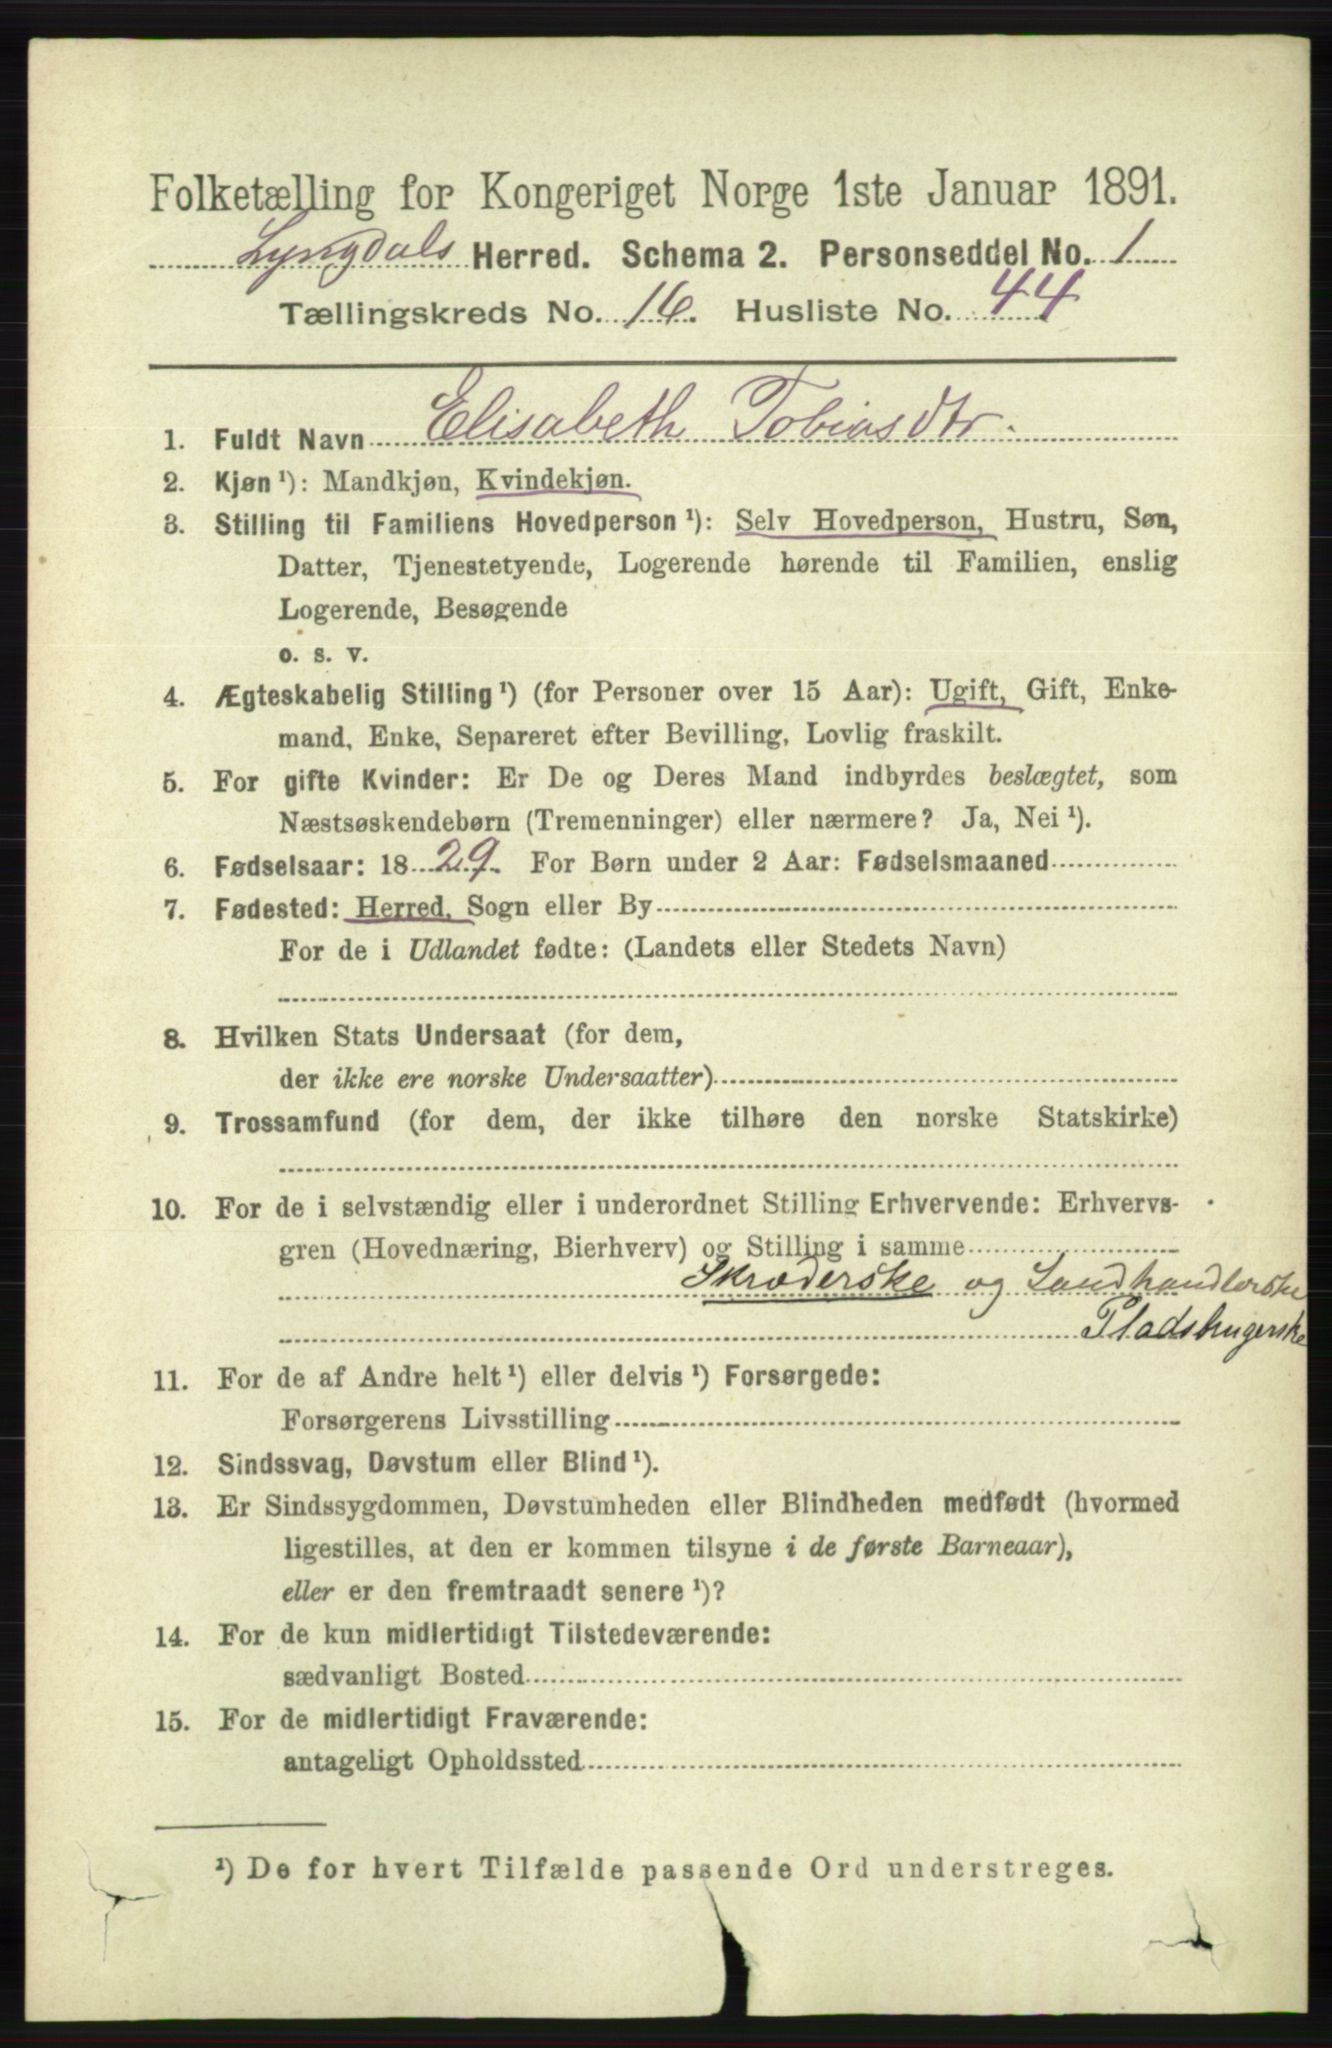 Folketælling for Kongeriget Norge 1ste Januar 1891.
Lyngdals Herred. Schema 2. Personseddel No. 1
Tællingskreds No. 16. Husliste No. 44
1. Fuldt Navn Elisabeth Tobiasdtr.
2. Kjøn ¹): Mandkjøn, Kvindekjøn.
3. Stilling til Familiens Hovedperson ¹): Selv Hovedperson, Hustru, Søn,
Datter, Tjenestetyende, Logerende hørende til Familien, enslig
Logerende, Besøgende
o. s. v.
4. Ægteskabelig Stilling ¹) (for Personer over 15 Aar): Ugift, Gift, Enke-
mand, Enke, Separeret efter Bevilling, Lovlig fraskilt.
5. For gifte Kvinder: Er De og Deres Mand indbyrdes beslægtet, som
Næstsøskendebørn (Tremenninger) eller nærmere? Ja, Nei ¹).
6. Fødselsaar: 1829. For Børn under 2 Aar: Fødselsmaaned
7. Fødested: Herred, Sogn eller By
For de i Udlandet fødte: (Landets eller Stedets Navn)
8. Hvilken Stats Undersaat (for dem,
der ikke ere norske Undersaatter)
9. Trossamfund (for dem, der ikke tilhøre den norske Statskirke)
10. For de i selvstændig eller i underordnet Stilling Erhvervende: Erhvervs-
gren (Hovednæring, Bierhverv) og Stilling i samme
Skræderske og Landhandlerske
Pladsbrugerske
11. For de af Andre helt ¹) eller delvis ¹) Forsørgede:
Forsørgerens Livsstilling
12. Sindssvag, Døvstum eller Blind ¹).
13. Er Sindssygdommen, Døvstumheden eller Blindheden medfødt (hvormed
ligestilles, at den er kommen tilsyne i de første Barneaar),
eller er den fremtraadt senere ¹)?
14. For de kun midlertidigt Tilstedeværende:
sædvanligt Bosted
15. For de midlertidigt Fraværende:
antageligt Opholdssted
¹) De for hvert Tilfælde passende Ord understreges.